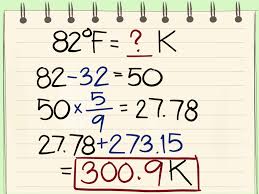 82°F = ? K
82-32=50
50×5/9=27.78
27.78+273.15
=300.9K